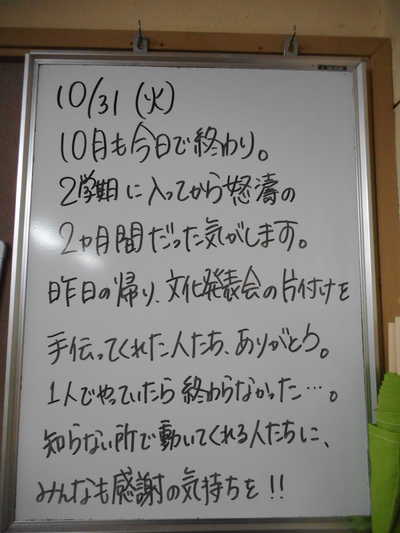 10/31 (火)
10月も今日で終わり。
2学期に入ってから怒濤の
2ヵ月間だった気がします。
昨日の帰り、文化発表会の片付けを
手伝ってくれた人たち、ありがとう。
1人でやっていたら終わらなかった…。
知らない所で動いてくれる人たちに、
みんなも感謝の気持ちを!!